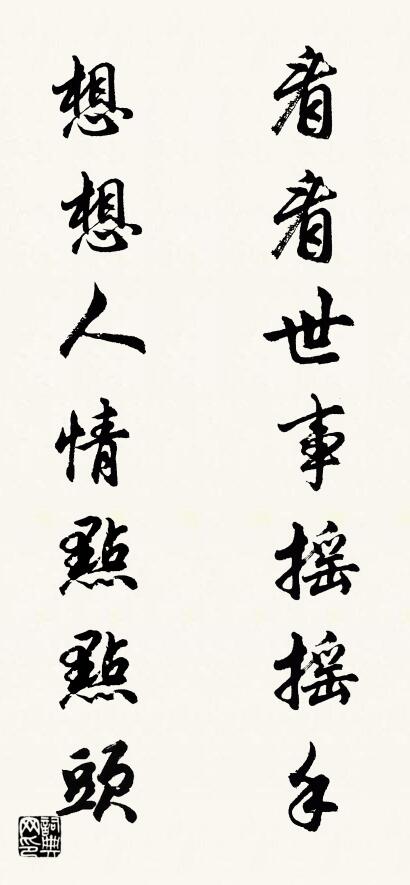 看看世事摇摇手
想想人情點點頭
詞典网印